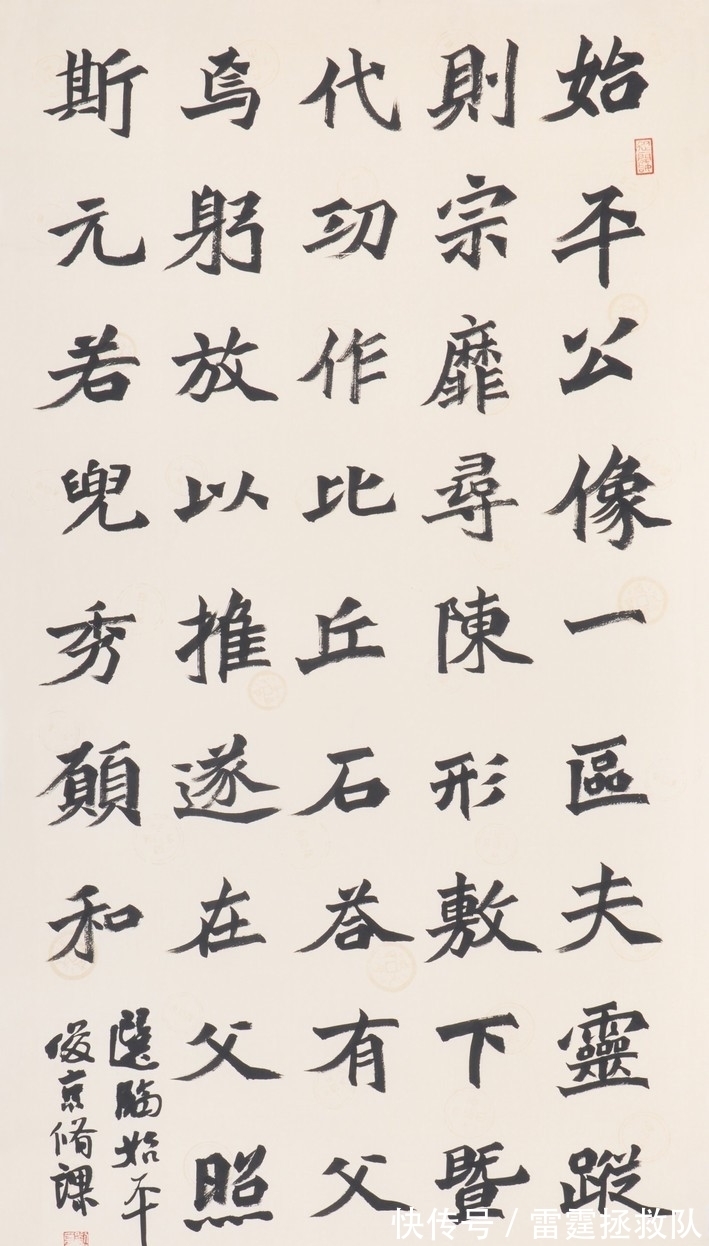 始平公像一區夫靈蹤
則宗靡尋陳形敷下暨
代功作比丘石荅有父
焉躬放以推遂在父照
斯元若兜秀願和
選臨始平
俊京脩課
快传号 / 雷霆拯救队